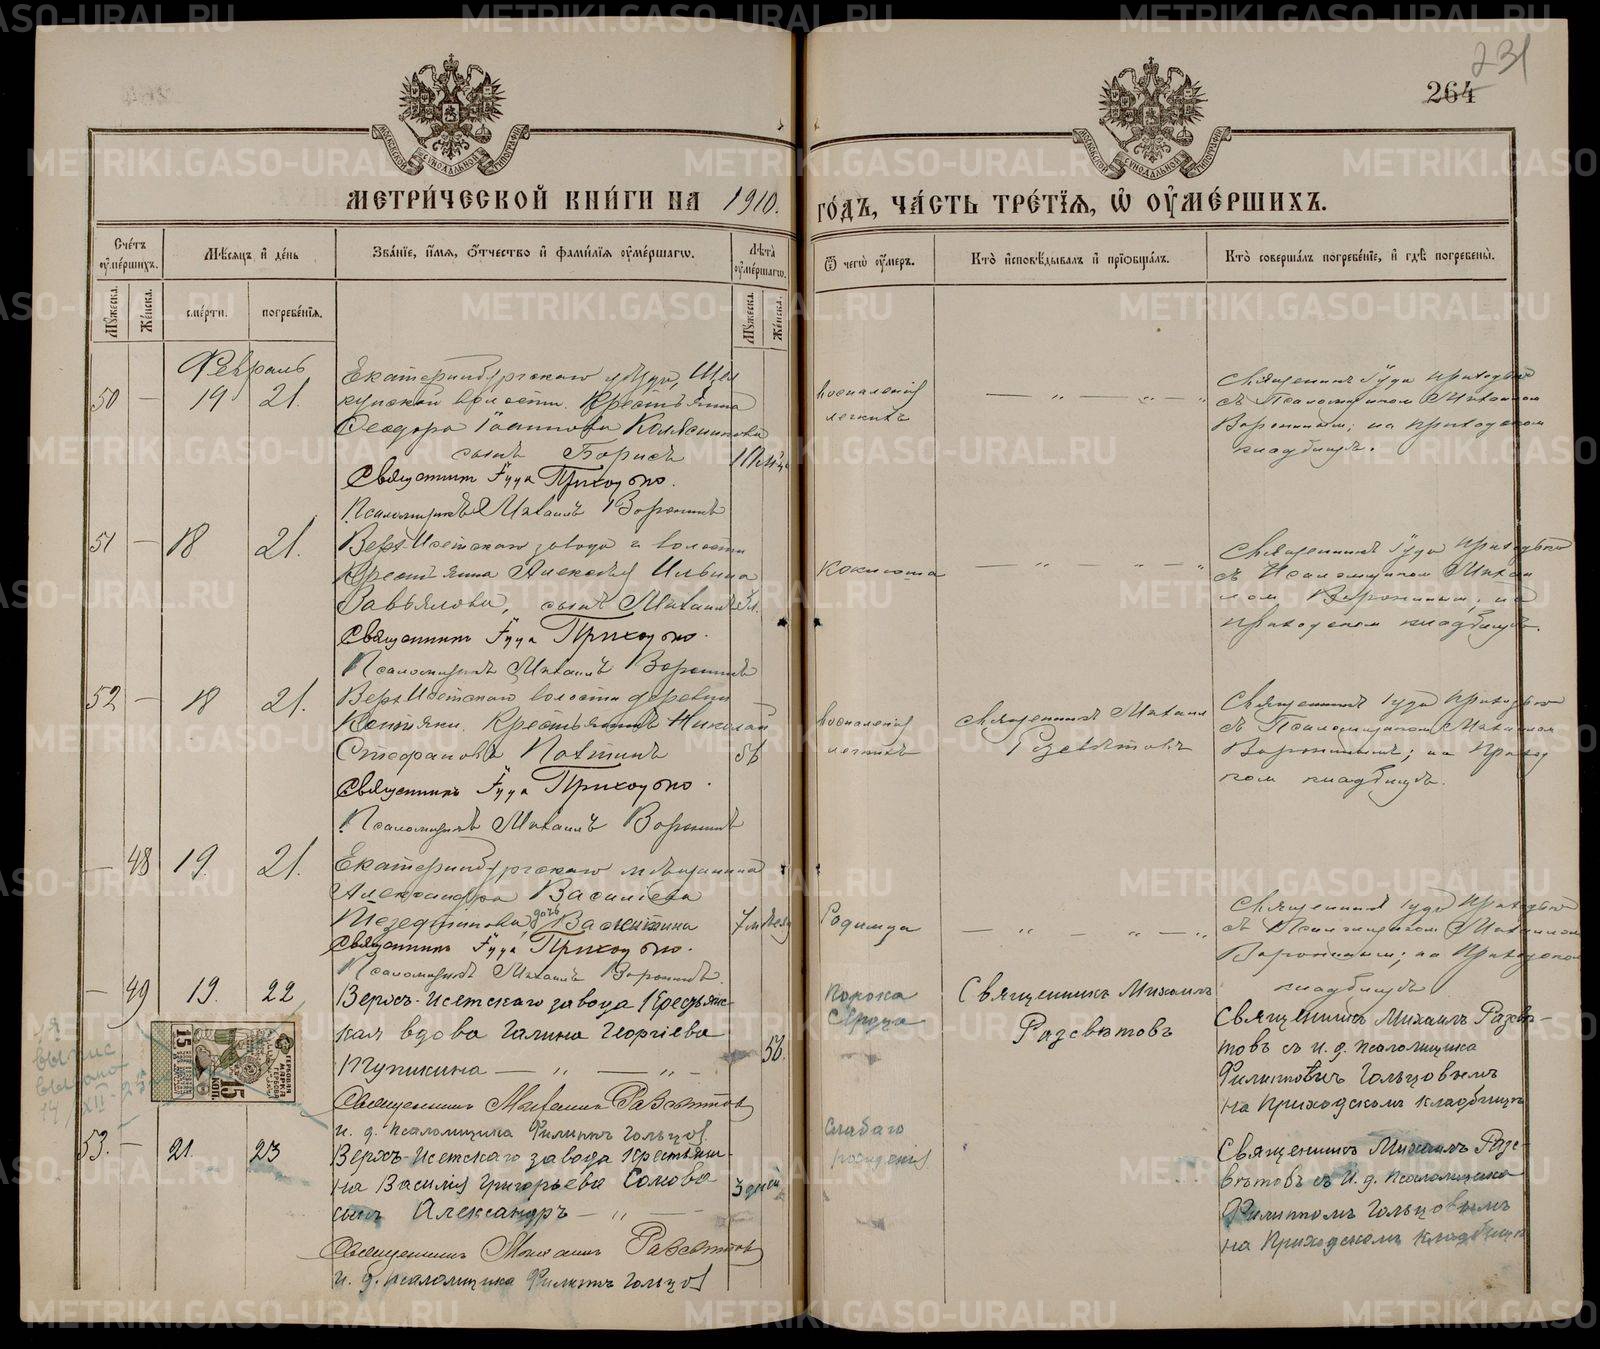 231
264
МОСКОВСКОЙ СИНОДАЛЬНОЙ ТИПОГРАФІИ
МОСКОВСКОЙ СИНОДАЛЬНОЙ ТИПОГРАФІИ
МЕТРИ́ЧЕСКОЙ КНИ́ГИ НА 1910.
ГО́ДЪ, ЧА́СТЬ ТРЕ́ТІЯ, Ѡ ОУ҆МЕ́РШИХЪ.
Сче́тъ оу҆ме́ршихъ.
Мꙋжеска.
Же́нска.
Мѣ́сяцъ и҆ де́нь
сме́рти.
погребе́нїѧ.
Зва́нїе, и҆́мѧ, ѻ҆́тчество и҆ фами́лїѧ оу҆ме́ршагѡ.
Лѣ́та оу҆ме́ршагѡ.
Мꙋжеска.
Же́нска.
Ѿ чегѡ̀ оу҆́меръ.
Кто̀ и҆сповѣ́дывалъ и҆ прїѡбща́лъ.
Кто̀ соверша́лъ погребе́нїе, и҆ гдѣ̀ погребены̀.
Февраль
50 — 19 21.
Екатеринбургскаго уѣзда, Щел
кунской волости. Крестьянина
Ѳеодора Іоаннова
сынъ Борисъ
Священник Іуда Приходько.
Псаломщикъ Михаилъ Воронинъ
Воспаленія
легкихъ
— „ — „ — „
Священник Іуда Приходько
съ Псаломщиком Михаилом
Ворониным; на приходском
кладбищѣ.
51 — 18 21.
Верх-Исетскаго завода и волости
Крестьянина Алексѣя Ильина
Завьялова, сынъ Михаилъ 3 л.
Священник Іуда Приходько.
Псаломщикъ Михаилъ Воронинъ
Коклюша
— „ — „ — „
Священник Іуда Приходько
съ Псаломщиком Михаи
лом Ворониным; на
Приходском кладбищѣ.
52 — 18 21.
Верх-Исетскаго волости деревни
Крестьянинъ Николай
Стефановъ 56
Священникъ Іуда Приходько.
Псаломщикъ Михаилъ Воронинъ
Воспаленія
легкихъ
Священникъ Михаил
Разсвѣтовъ
Священникъ Іуда Приходько
съ Псаломщиком Михаилом
Воронинымъ; на Приход
ком кладбищѣ.
— 48 19. 21.
Екатеринбургскаго мѣщанина
Александра Васильева
дочь Валентина 7 м
Священник Іуда Приходько.
Псаломщикъ Михаилъ Воронинъ.
Родимца
— „ — „ — „
Священникъ Іуда Приходько
съ Псаломщиком Михаилом
Воронинымъ; на Приходском
кладбищѣ
— 49 19. 22
Верхъ-Исетскаго завода Крестьянс-
кая вдова Галина Георгіева
Тупикина — „ — „ — 56.
Священникъ Михаилъ Разсвѣтов
и. д. псаломщика Филиппъ Гольцов.
Порока
Сердца
Священникъ Михаилъ
Разсвѣтовъ
Священникъ Михаилъ Разсвѣ-
товъ съ и. д. псаломщика
Филипповичъ Гольцовымъ
на Приходскомъ кладбищѣ
ГЕРБОВАЯ МАРКА
15 КОП.
15
53. — 21. 23
Верхъ-Исетскаго завода крестьяни-
на Василія Григорьева Сомова 3 дней
сынъ Александръ — „ —
Священникъ Михаилъ Разсвѣтовъ
и. д. псаломщика Филиппъ Гольцов
Слабаго
рожденія
Священникъ Михаилъ Разс-
вѣтовъ съ и. д. псаломщика
Филиппомъ Гольцовымъ
на Приходскомъ кладбищѣ
METRIKI.GASO-URAL.RU